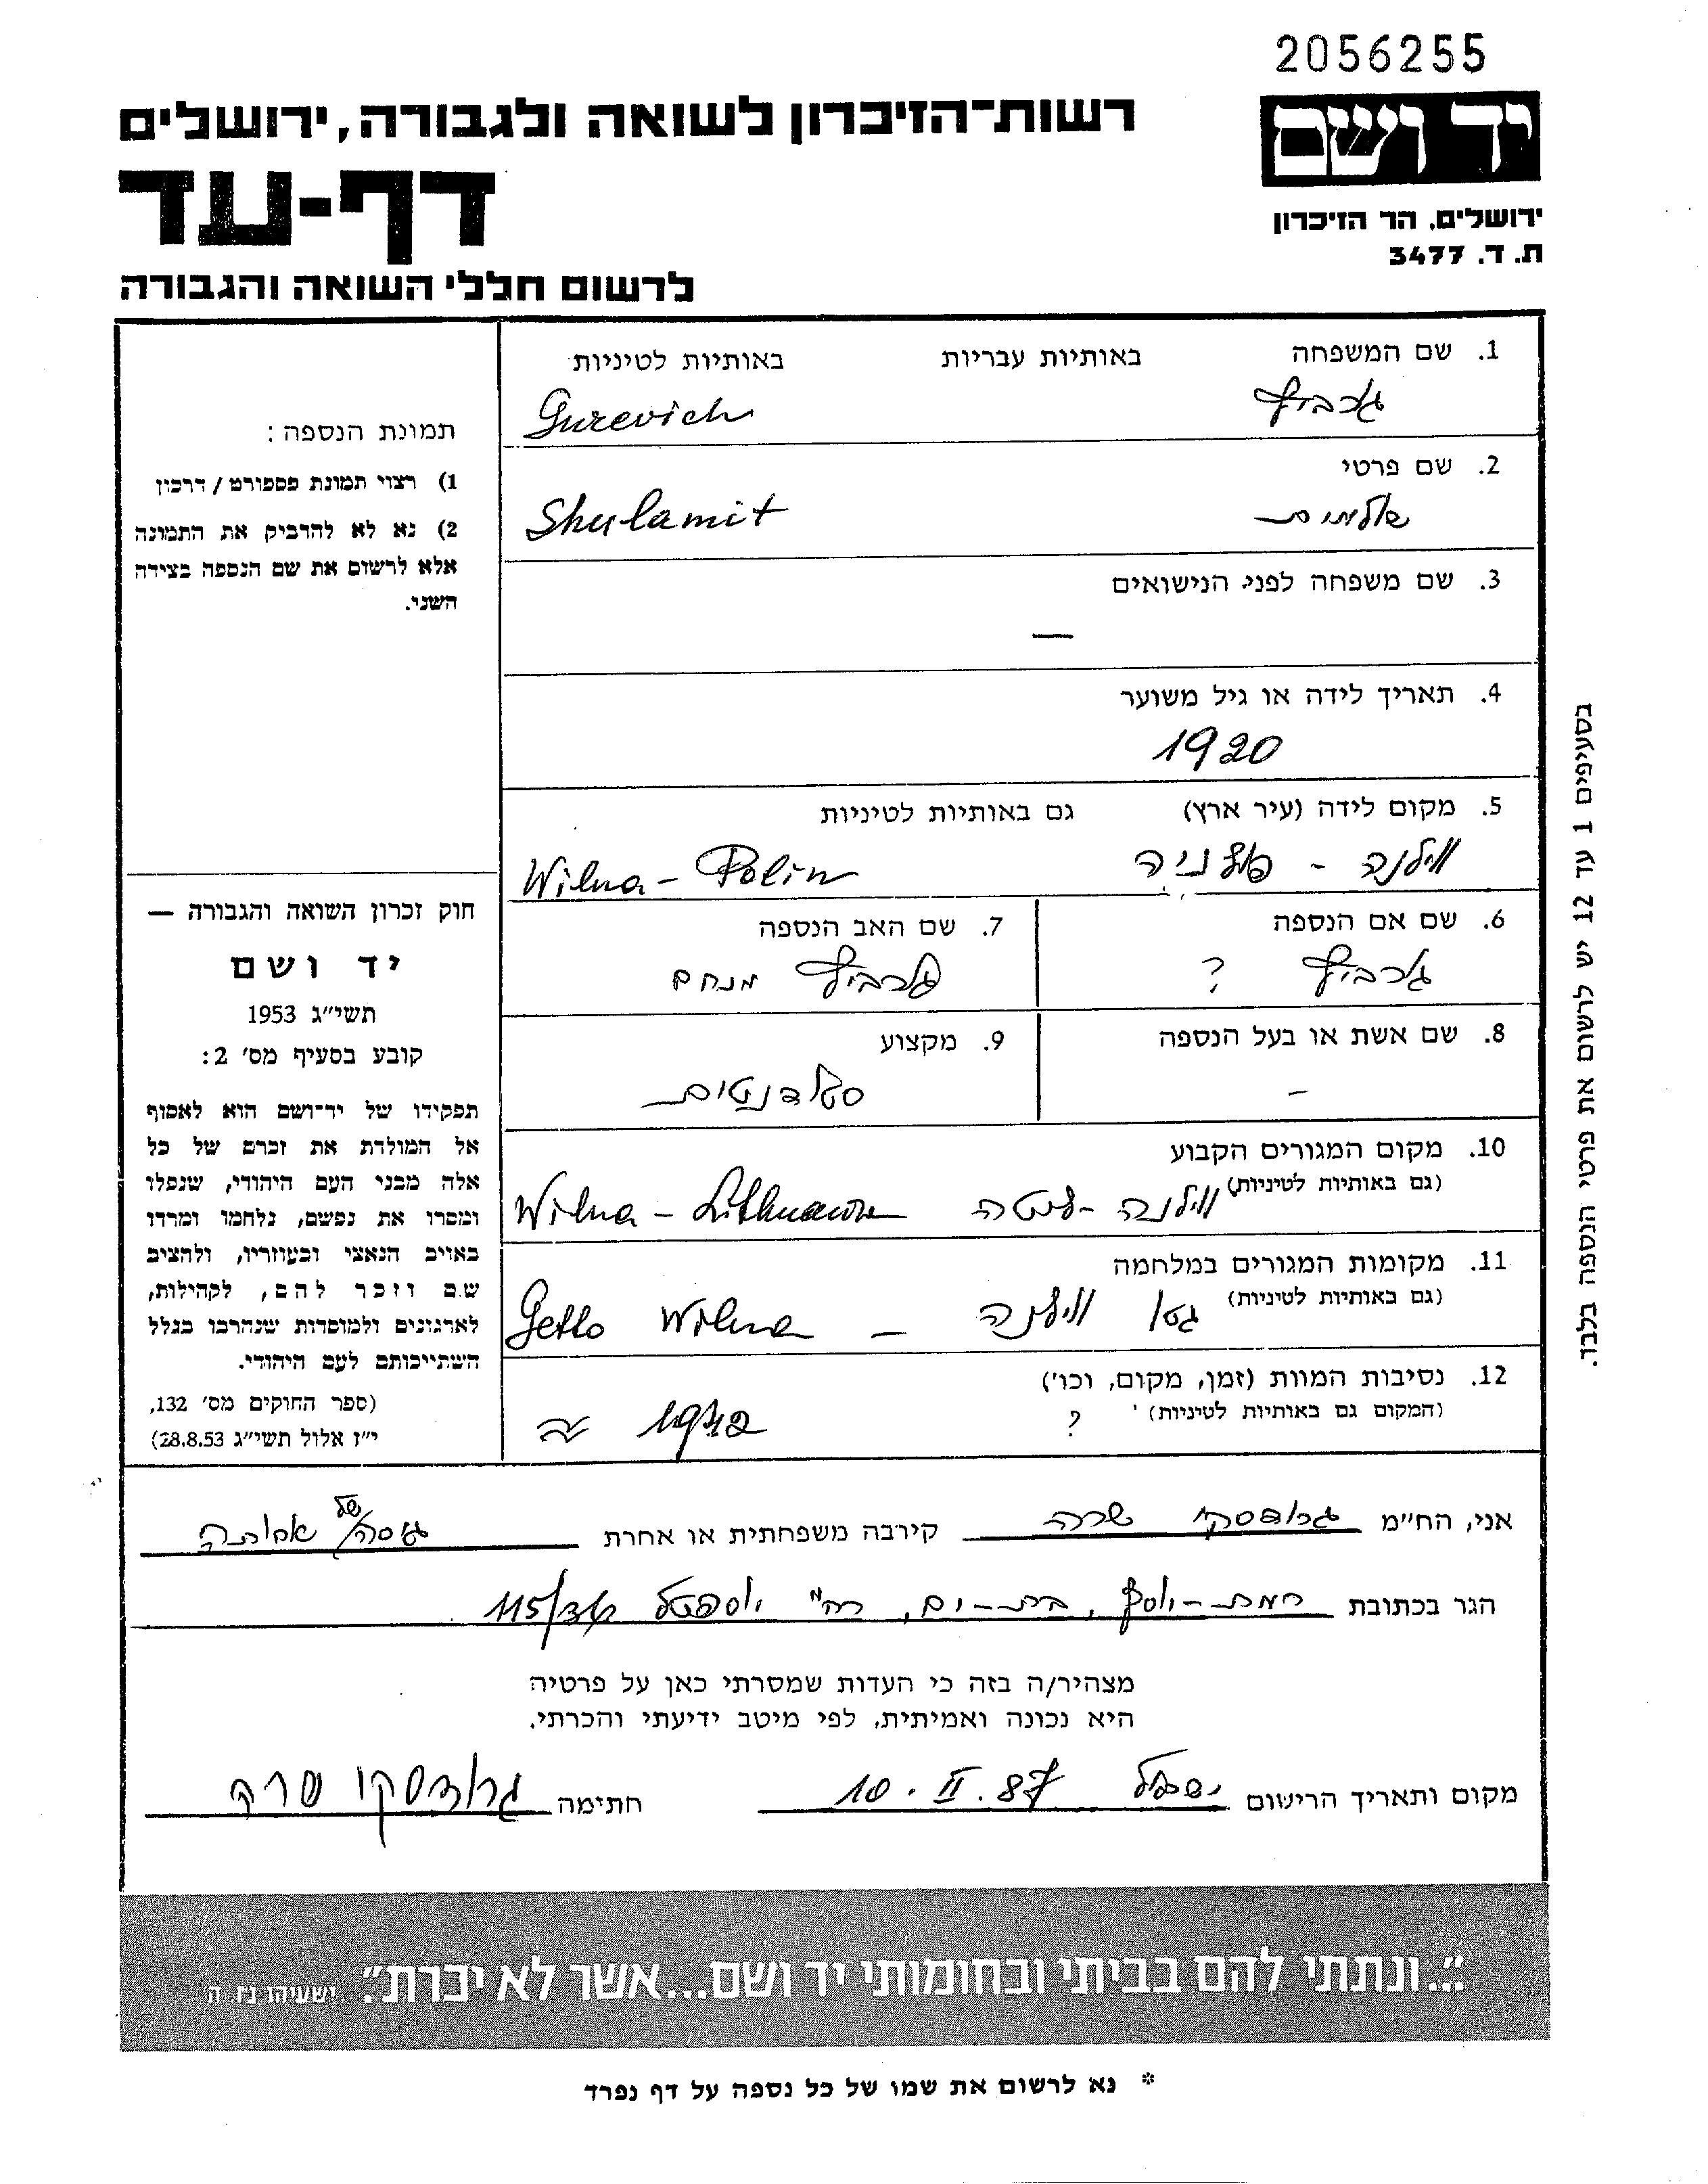 2056255
יד ושם
ירושלים, הר הזיכרון
ת. ד. 3477
רשות־הזיכרון לשואה ולגבורה, ירושלים
דף-עד
לרשום חללי השואה והגבורה
1. שם המשפחה באותיות עבריות באותיות לטיניות
גורביץ Gurevich
2. שם פרטי
שולמית Shulamit
3. שם משפחה לפני הנישואים
—
4. תאריך לידה או גיל משוער
1920
5. מקום לידה (עיר ארץ) גם באותיות לטיניות
ווילנה - פולניה Wilna - Polin
6. שם אם הנספה
גורביץ ?
7. שם האב הנספה
גורביץ מנחם
8. שם אשת או בעל הנספה
–
9. מקצוע
סטודנטית
10. מקום המגורים הקבוע
(גם באותיות לטיניות)
ווילנה - ליטה Wilna -
11. מקומות המגורים במלחמה
(גם באותיות לטיניות)
גטו ווילנה – Getto Wilna
12. נסיבות המוות (זמן, מקום, וכו')
(המקום גם באותיות לטיניות)
? 1942
תמונת הנספה:
1) רצוי תמונת פספורט / דרכון
2) נא לא להדביק את התמונה
אלא לרשום את שם הנספה בצידה
השני.
חוק זכרון השואה והגבורה —
יד ושם
תשי״ג 1953
קובע בסעיף מס׳ 2:
תפקידו של יד־ושם הוא לאסוף
אל המולדת את זכרם של כל
אלה מבני העם היהודי, שנפלו
ומסרו את נפשם, נלחמו ומרדו
באויב הנאצי ובעוזריו, ולהציב
שם וזכר להם, לקהילות,
לארגונים ולמוסדות שנהרבו בגלל
השתייכותם לעם היהודי.
(ספר החוקים מס׳ 132,
י״ז אלול תשי״ג 28.8.53)
בסעיפים 1 עד 12 יש לרשום את פרטי הנספה בלבד.
אני, הח״מ גרודסקי שרה קירבה משפחתית או אחרת גיסה של אחותה
הגר בכתובת רמת-יוסף, בת-ים, רח״ יוספטל 115/
מצהיר/ה בזה כי העדות שמסרתי כאן על פרטיה
היא נכונה ואמיתית, לפי מיטב ידיעתי והכרתי.
מקום ותאריך הרישום ישראל 10. II. 87 חתימה גרודסקי שרה
"...ונתתי להם בביתי ובחומותי יד ושם...אשר לא יכרת". ישעיהו נ״ו. ה׳
* נא לרשום את שמו של כל נספה על דף נפרד